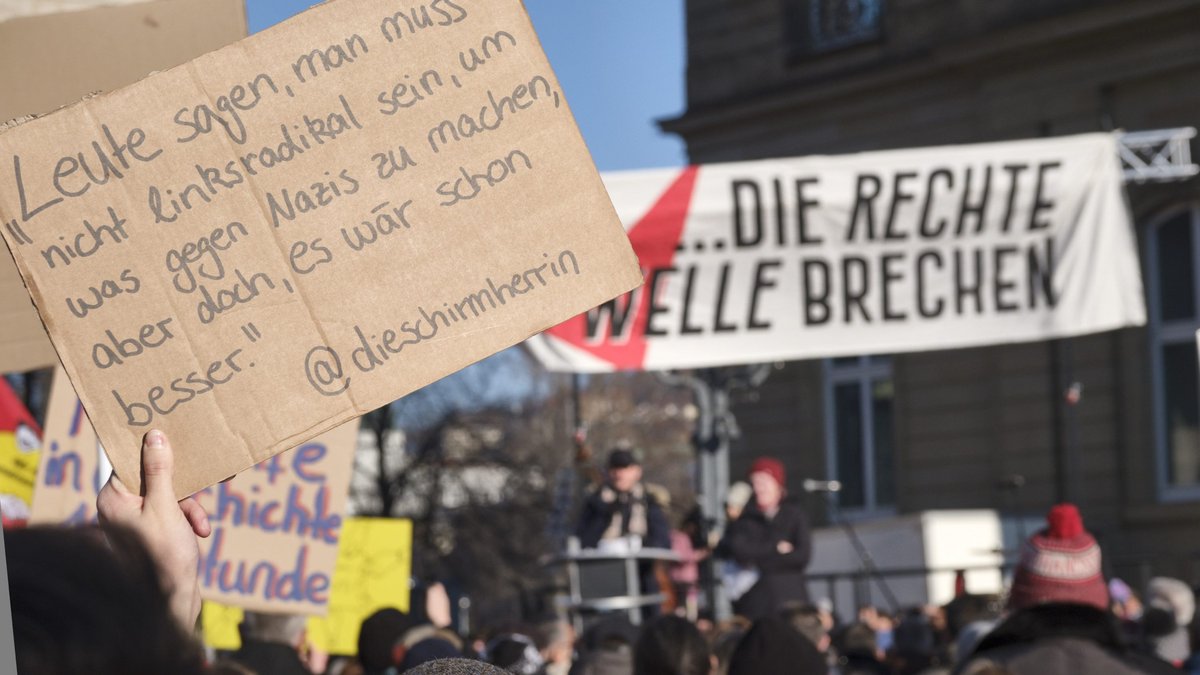 "Leute sagen, man muss
nicht linksradikal sein, um
was gegen Nazis zu machen,
aber doch, es wär schon
besser."
@dieschirmherrin
...DIE RECHTE
WELLE BRECHEN
in